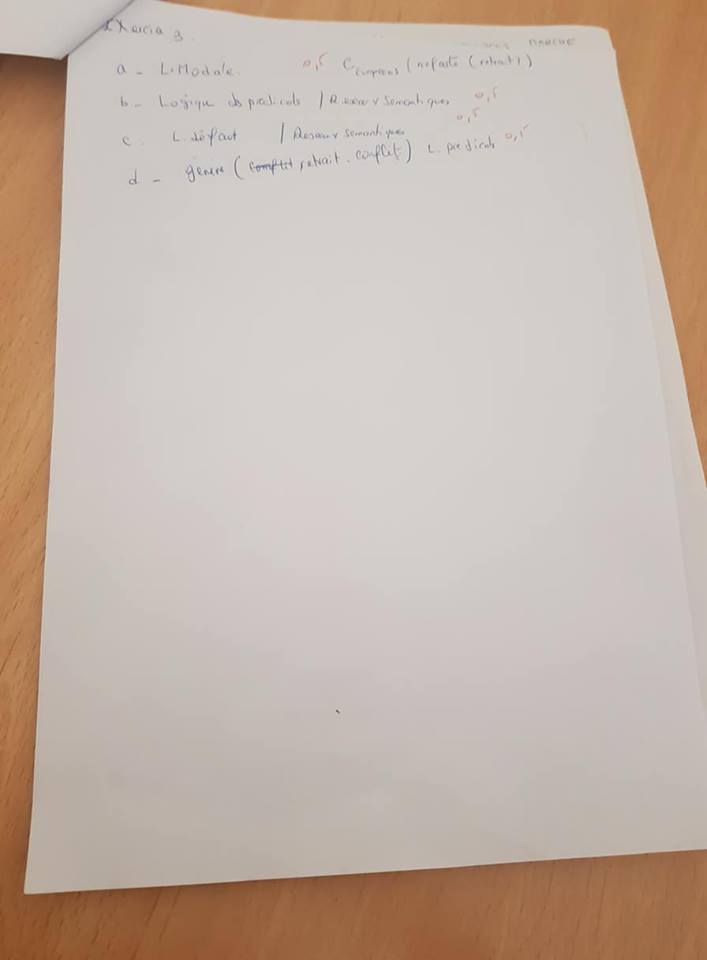 Exercice 3.
MARCHE
a - L. Modale. 0,5 C européens (nefaste (retrait)
b - Logique ds predicats / Reseaux semantiques 0,5
c. L. défaut / Reseaux semantiques 0,5
d - genere (conflit retrait. conflit) L. predicats 0,5